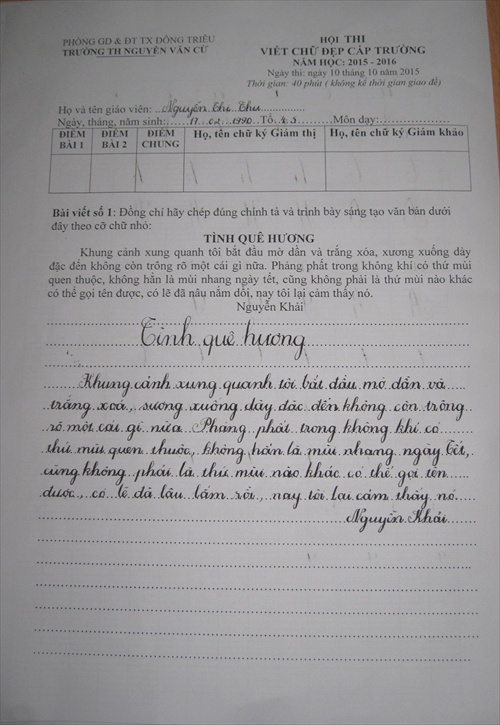 PHÒNG GD & ĐT TX ĐÔNG TRIỀU
TRƯỜNG TH NGUYỄN VĂN CỪ
HỘI THI
VIẾT CHỮ ĐẸP CẤP TRƯỜNG
NĂM HỌC: 2015 - 2016
Ngày thi: ngày 10 tháng 10 năm 2015
Thời gian: 40 phút ( không kể thời gian giao đề)
Họ và tên giáo viên: ..Nguyễn Thị Thu..............
Ngày, tháng, năm sinh:......17..02..1990..Tổ..4.5.........Môn dạy:..................
ĐIỂM BÀI 1 | ĐIỂM BÀI 2 | ĐIỂM CHUNG | Họ, tên chữ ký Giám thị | Họ, tên chữ ký Giám khảo
Bài viết số 1: Đồng chí hãy chép đúng chính tả và trình bày sáng tạo văn bản dưới
đây theo cỡ chữ nhỏ:
TÌNH QUÊ HƯƠNG
Khung cảnh xung quanh tôi bắt đầu mờ dần và trắng xóa, xương xuống dày
đặc đến không còn trông rõ một cái gì nữa. Phảng phất trong không khí có thứ mùi
quen thuộc, không hẳn là mùi nhang ngày tết, cũng không phải là thứ mùi nào khác
có thể gọi tên được, có lẽ đã nâu nắm dồi, nay tôi lại cảm thấy nó.
Nguyễn Khải
Tình quê hương
Khung cảnh xung quanh tôi bắt đầu mờ dần và
trắng xoá, sương xuống dày đặc đến không còn trông
rõ một cái gì nữa. Phảng phất trong không khí có
thứ mùi quen thuộc, không hẳn là mùi nhang ngày tết,
cũng không phải là thứ mùi nào khác có thể gọi tên
được, có lẽ đã lâu lắm rồi, nay tôi lại cảm thấy nó.
Nguyễn Khải